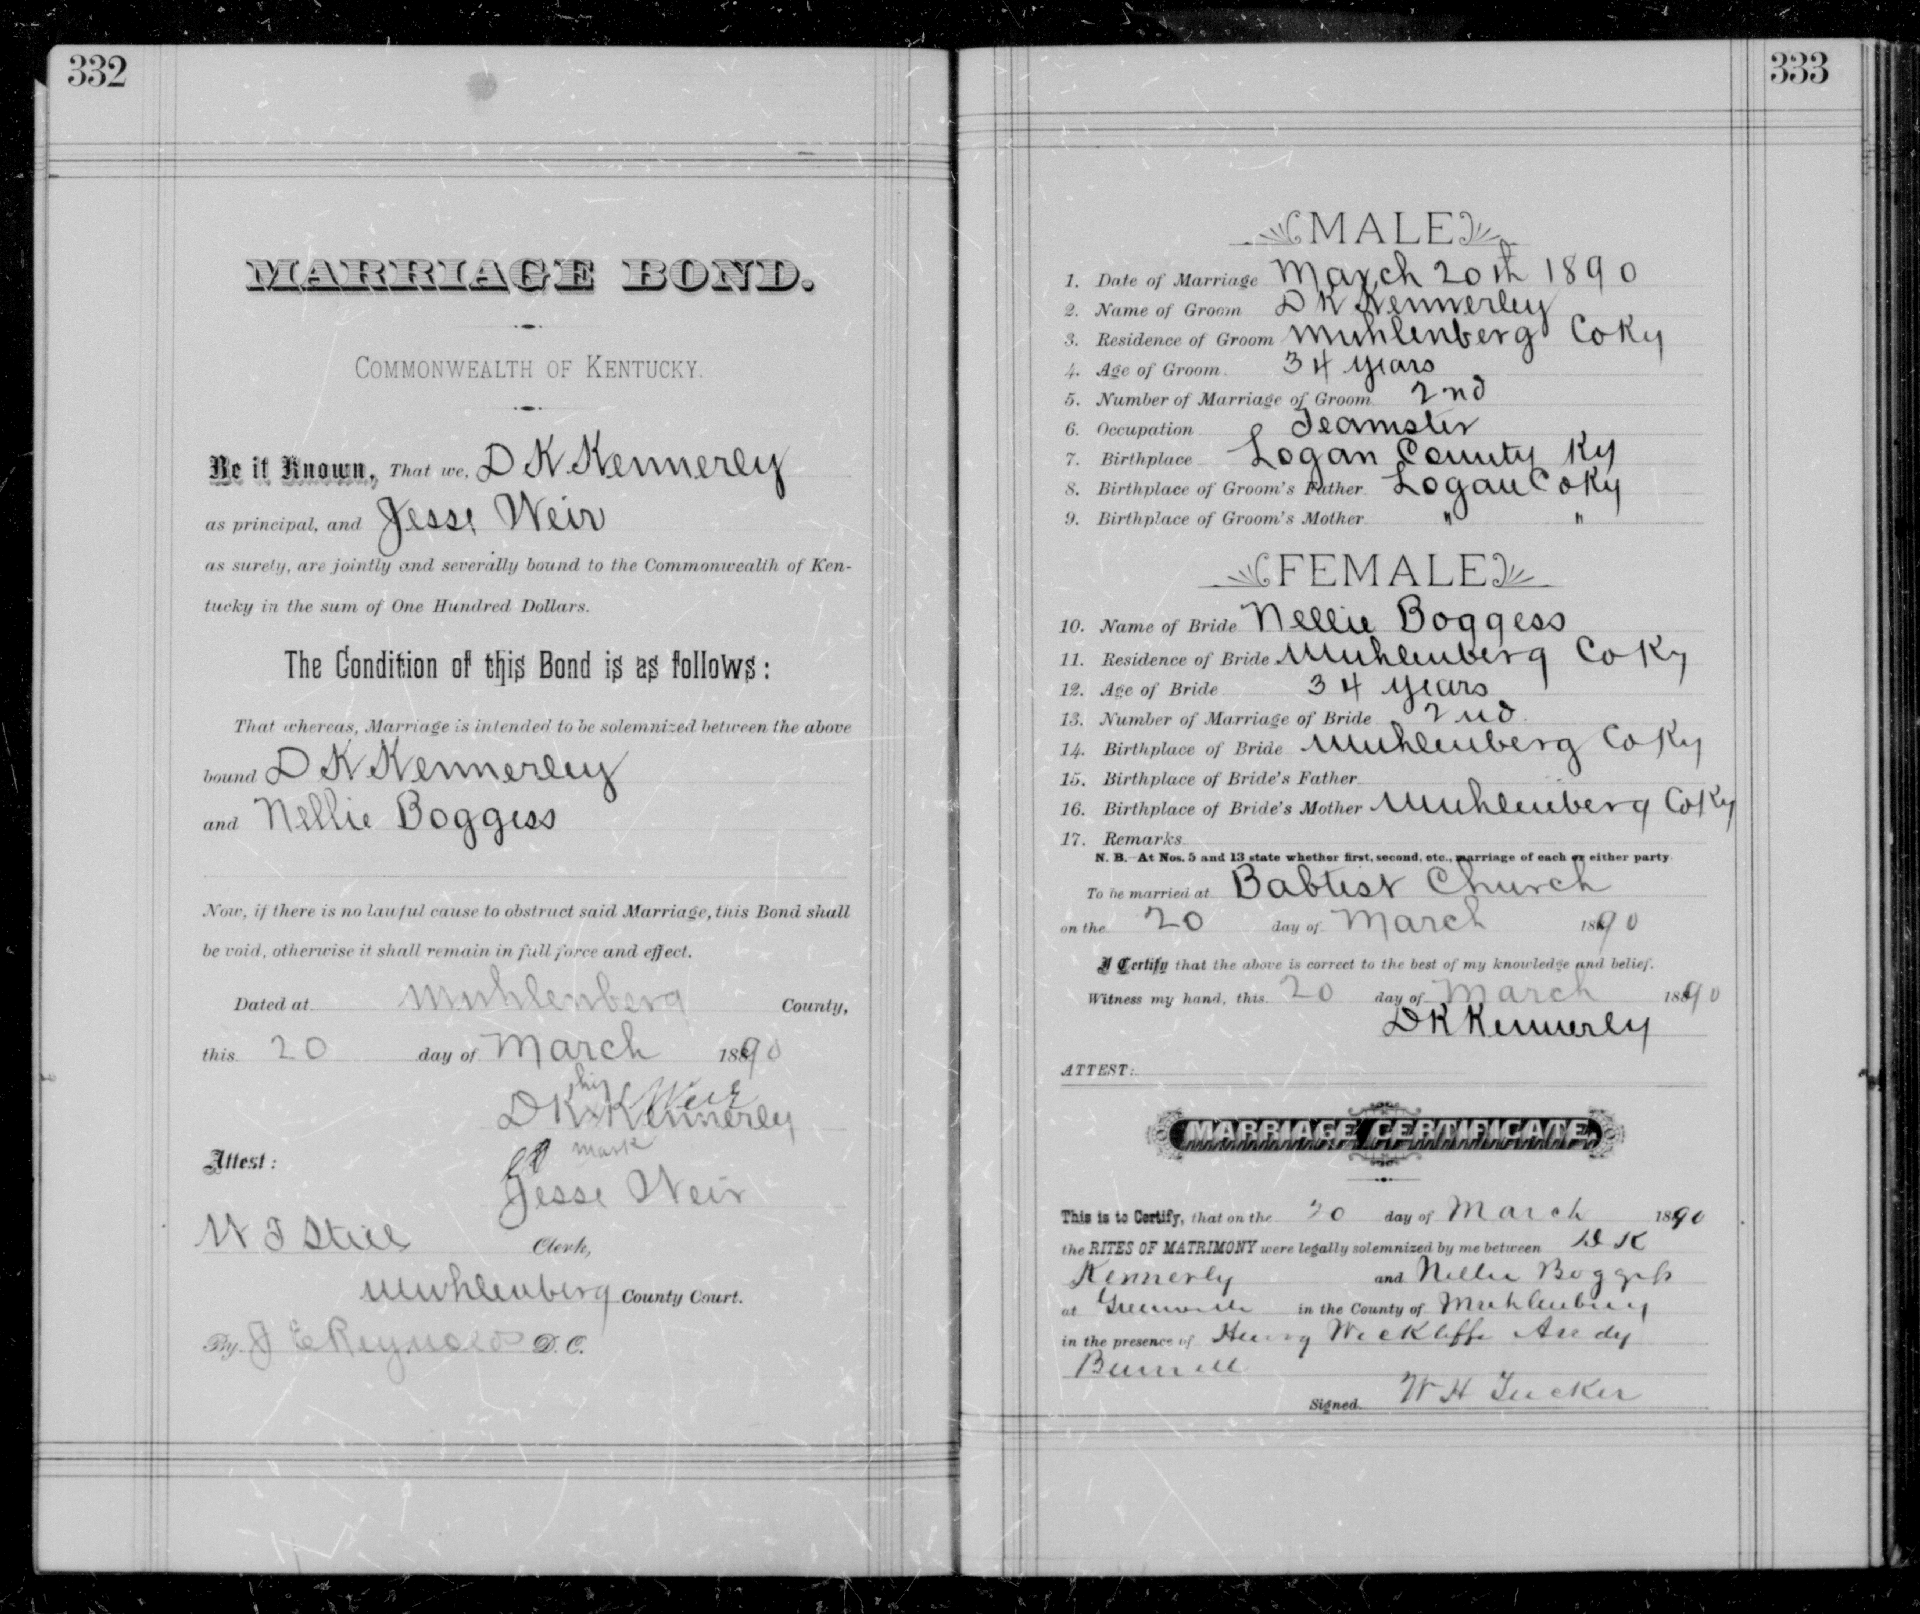 332
MARRIAGE BOND.
COMMONWEALTH OF KENTUCKY.
Be it Known, That we, D K Kennerley
as principal, and Jesse Weir
as surety, are jointly and severally bound to the Commonwealth of Ken-
tucky in the sum of One Hundred Dollars.
The Condition of this Bond is as follows:
That whereas, Marriage is intended to be solemnized between the above
bound D K Kennerley
and Nellie Boggess
Now, if there is no lawful cause to obstruct said Marriage, this Bond shall
be void, otherwise it shall remain in full force and effect.
Dated at Muhlenberg County,
this 20 day of March 1890
his
D K x Kennerley
mark
Attest:
Jesse Weir
Clerk,
Muhlenberg County Court.
By J E Reynolds D. C.
333
MALE
1. Date of Marriage March 20th 1890
2. Name of Groom D K Kennerley
3. Residence of Groom Muhlenberg Co Ky
4. Age of Groom 34 years
5. Number of Marriage of Groom 2nd
6. Occupation Teamster
7. Birthplace Logan County Ky
8. Birthplace of Groom's Father Logan Co Ky
9. Birthplace of Groom's Mother " "
FEMALE
10. Name of Bride Nellie Boggess
11. Residence of Bride Muhlenberg Co Ky
12. Age of Bride 34 years
13. Number of Marriage of Bride 2nd
14. Birthplace of Bride Muhlenberg Co Ky
15. Birthplace of Bride's Father
16. Birthplace of Bride's Mother Muhlenberg Co Ky
17. Remarks
N. B.—At Nos. 5 and 13 state whether first, second, etc., marriage of each or either party
To be married at Babtist Church
on the 20 day of March 1890
I Certify that the above is correct to the best of my knowledge and belief.
Witness my hand, this 20 day of March 1890
D K Kennerly
ATTEST:
MARRIAGE CERTIFICATE.
This is to Certify, that on the 20 day of March 1890
the RITES OF MATRIMONY were legally solemnized by me between D K
Kennerly and Nellie Boggess
at in the County of Muhlenburg
in the presence of Henry Wickliffe Andy
Signed W H Tucker